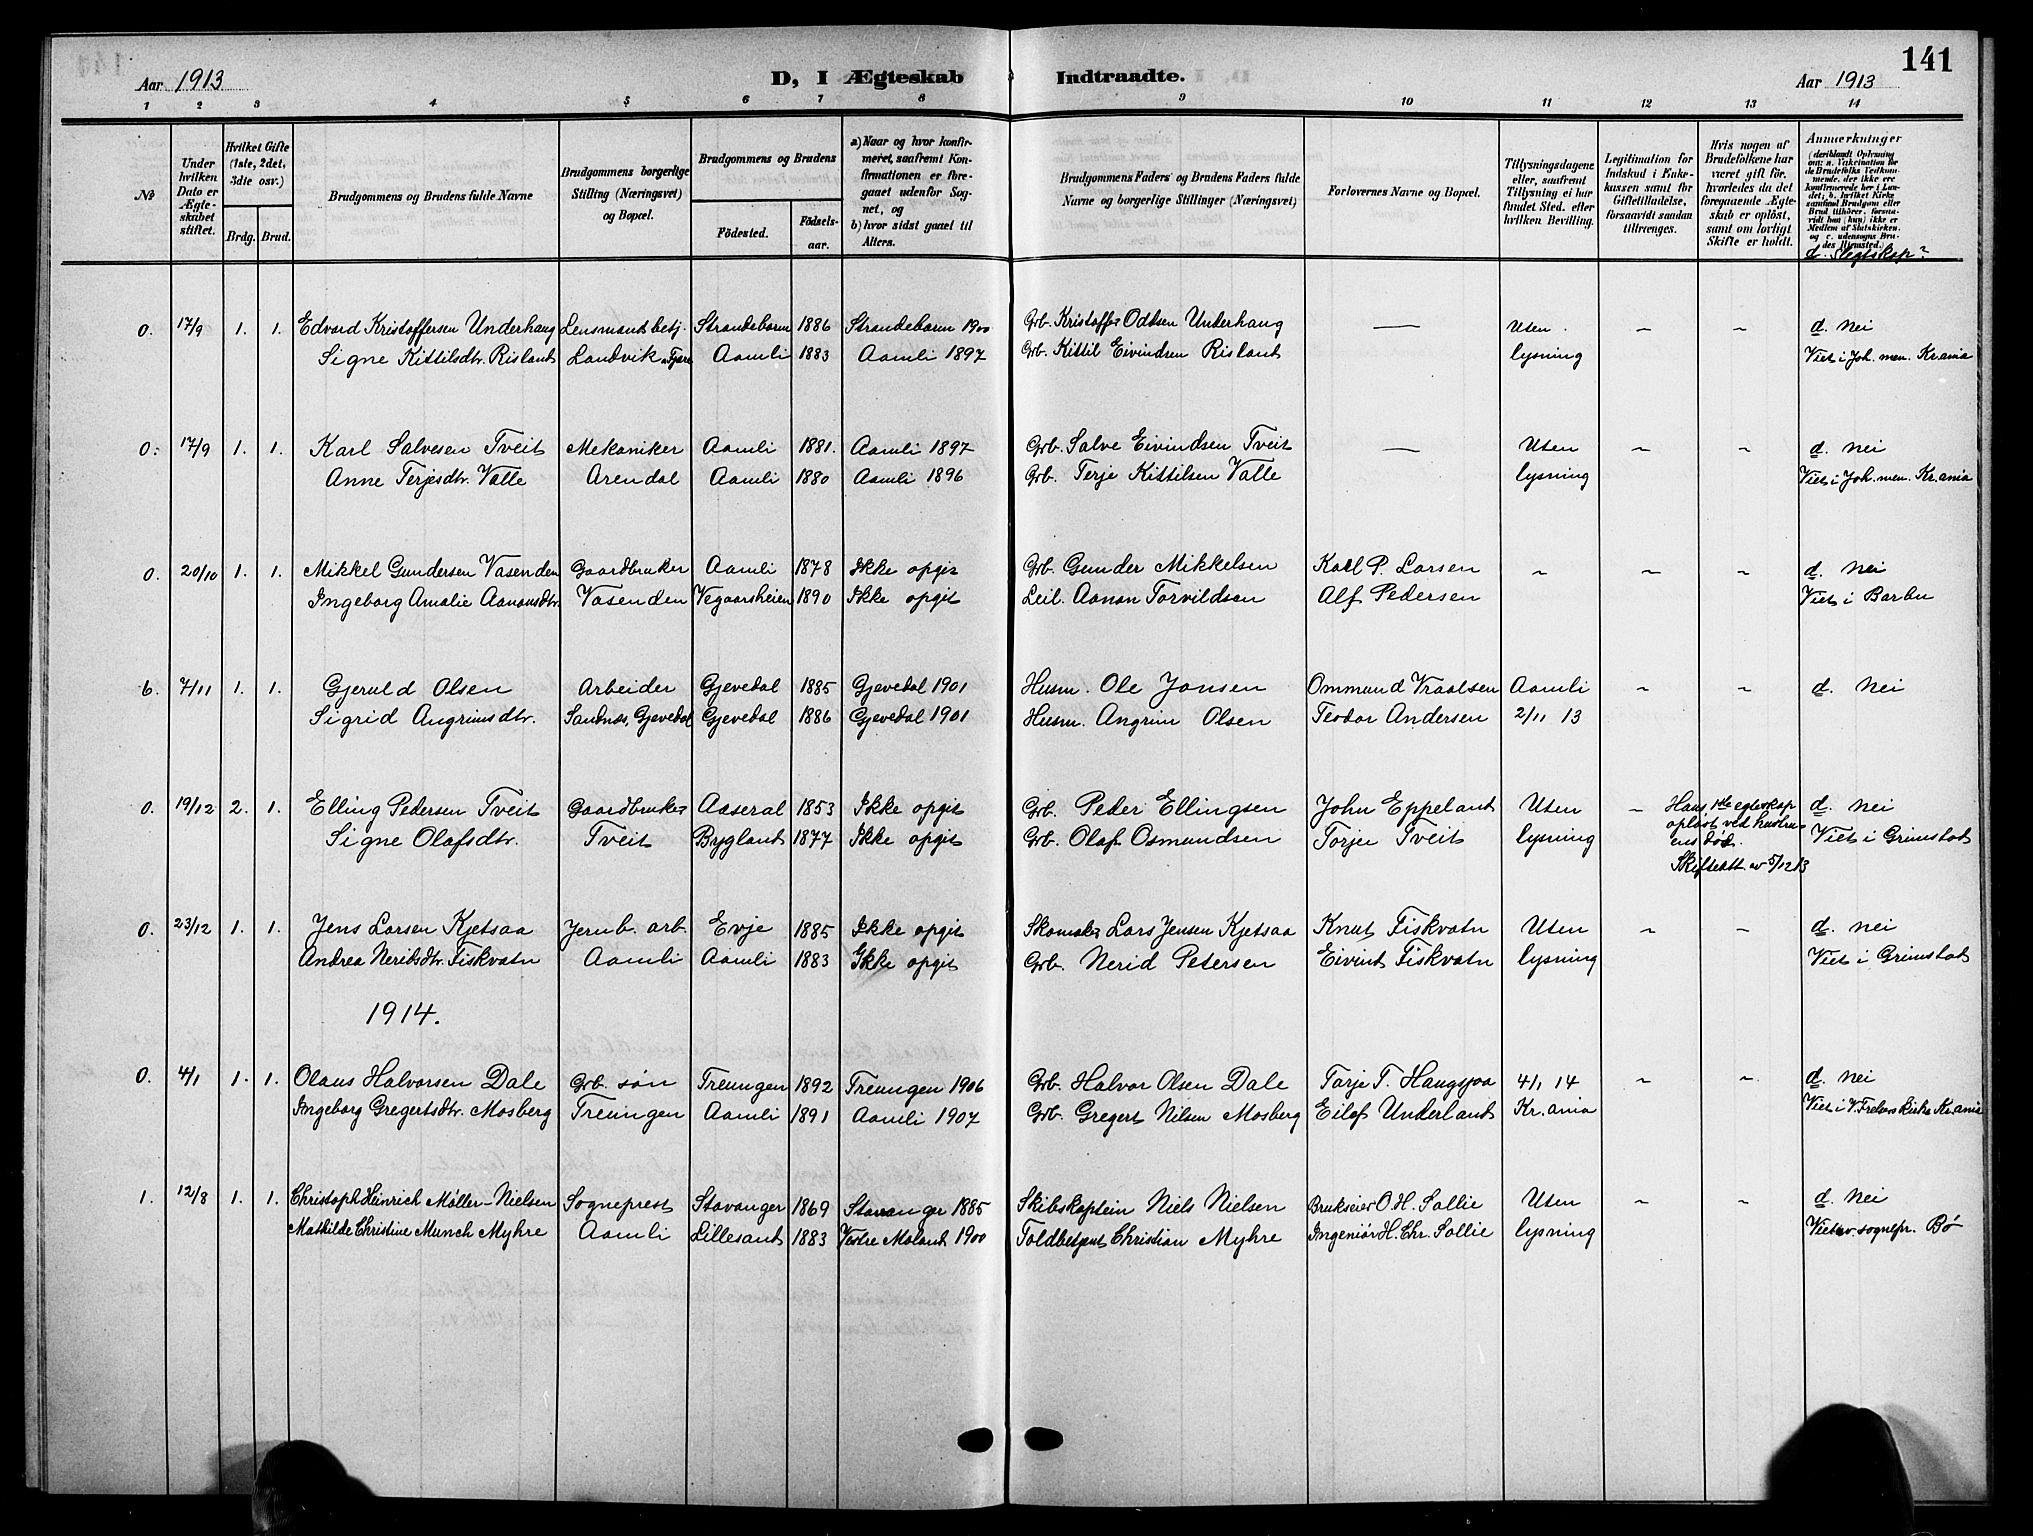 Aar 1913
D, I Ægteskab Indtraadte.
141
Aar 1913
1 2 3 4 5 6 7 8 9 10 11 12 13 14
No
Under hvilken Dato er Ægteskabet stiftet.
Hvilket Gifte (1ste, 2det, 3die osv.)
Brdg. Brud.
Brudgommens og Brudens fulde Navne
Brudgommens borgerlige Stilling (Næringsvei) og Bopæl.
Brudgommens og Brudens
Fødested. Fødselsaar.
a) Naar og hvor konfirmeret, saafremt Konfirmationen er foregaaet udenfor Sognet, og
b) hvor sidst gaaet til Alters.
Brudgommens Faders og Brudens Faders fulde Navne og borgerlige Stillinger (Næringsvei)
Forlovernes Navne og Bopæl.
Tillysningsdagene eller, saafremt Tillysning ei har fundet Sted, efter hvilken Bevilling.
Legitimation for Indskud i Enkekassen samt for Giftetilladelse, forsaavidt saadan tiltrænges.
Hvis nogen af Brudefolkene har været gift før, hvorledes da det foregaaende Ægteskab er opløst, samt om lovligt Skifte er holdt.
Anmerkninger (deriblandt Oplysning om: a. Vakcination for de Brudefolks Vedkommende, der ikke ere konfirmerede her i Landet; b. hvilket Kirkesamfund Brudgom eller Brud tilhører, forsaavidt han (hun) ikke er Medlem af Statskirken, og c. udensogns Brudes Hjemsted.)
d. Slegtskap?
0. 17/9 1. 1. Edvard Kristoffersen Underhaug Lensmandsbetj. Strandebarm 1886 Strandebarm 1900 Grb. Kristoffer Oddsen Underhaug — Uten — — d. Nei
Signe Kittilsdtr. Risland Landvik Aamli 1883 Aamli 1897 Grb. Kittil Eivindsen Risland lysning Viet i Joh. men. Kr.ania
0. 17/9 1. 1. Karl Salvesen Tveit Mekaniker Aamli 1881. Aamli 1897 Grb. Salve Eivindsen Tveit — Uten — — d. Nei
Anne Terjesdtr. Valle Arendal Aamli 1880 Aamli 1896 Grb. Terje Kittilsen Valle lysning Viet i Joh. men. Kr.ania
0. 20/10 1. 1. Mikkel Gundersen Vasenden Gaardbruker Aamli 1878 Ikke opgit Grb. Gunder Mikkelsen Karl P. Larsen — — — d. Nei
Ingeborg Amalie Aanonsdtr. Vasenden Vegaarsheien 1890 Ikke opgit Leil. Aanon Torvildsen Alf Pedersen Viet i Barbu
6. 7/11 1. 1. Gjeruld Olsen Arbeider Gjevedal 1885 Gjevedal 1901 Husm. Ole Jonsen Ommund Vraalsen Aamli — — d. Nei
Sigrid Angrimsdtr. Sandnes, Gjevedal Gjevedal 1886 Gjevedal 1901 Husm. Angrim Olsen Teodor Andersen 2/11 13
0. 19/12 2. 1. Elling Pedersen Tveit Gaardbruker Aaseral 1853 Ikke opgit Grb. Peder Ellingsen John Eppeland Uten — Hans 1ste egteskap d. Nei
Signe Olafsdtr. Tveit Bygland 1877 Ikke opgit Grb. Olaf Osmundsen Torjer Tveit lysning opløst ved hustruens død. Viet i Grimstad
Skifteatt. av 5/12 13
0. 23/12 1. 1. Jens Larsen Kjetsaa Jernb. arb. Evje 1885 Ikke opgit Skomaker Lars Jensen Kjetsaa Knut Fiskvatn Uten — — d. Nei
Andrea Neridsdtr. Fiskvatn Aamli Aamli 1883 Ikke opgit Grb. Nerid Petersen Eivind Fiskvatn lysning Viet i Grimstad
1914.
0. 4/1 1. 1. Olaus Halvorsen Dale Grb. søn Treungen 1892 Treungen 1906 Grb. Halvor Olsen Dale Tarje T. Haugsjaa 4/1 14 — — d. Nei
Ingeborg Gregertsdtr. Mosberg Treungen Aamli 1891 Aamli 1907 Grb. Gregert Nilsen Mosberg Eilef Underland Kr.ania Viet i V. Frelsers kirke Kr.ania
1. 12/8 1. 1. Christoph Heinrich Møller-Nielsen Sogneprest Stavanger 1869 Stavanger 1885 Skibskaptein Niels Nielsen Brukseier O. H. Sollie Uten — — d. Nei
Mathilde Christine Munch Myhre Aamli Lillesand 1883 Vestre Moland 1900 Toldbetjent Christian Myhre Ingeniør H. Chr. Sollie lysning Viet av sognepr. Bø